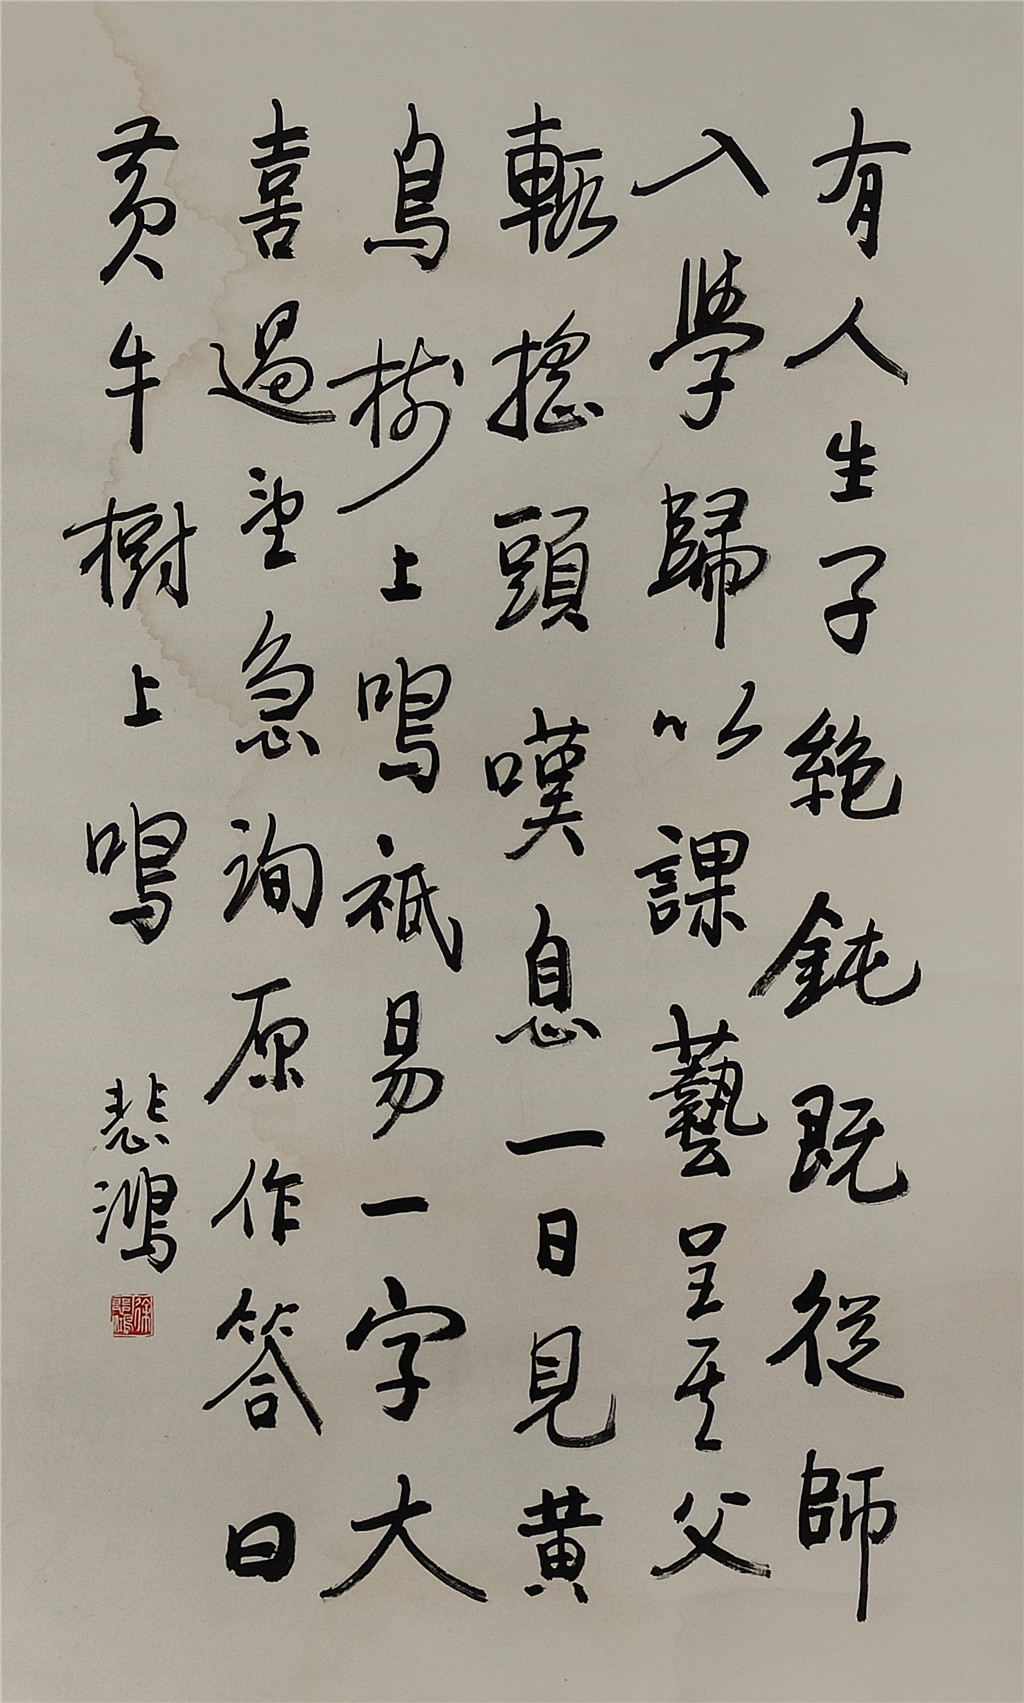 有人生子絶鈍既從師
入學歸以課藝呈其父
輒搖頭嘆息一日見黄
鳥樹上鳴祇易一字大
喜過望急詢原作答曰
黄牛樹上鳴
悲鴻